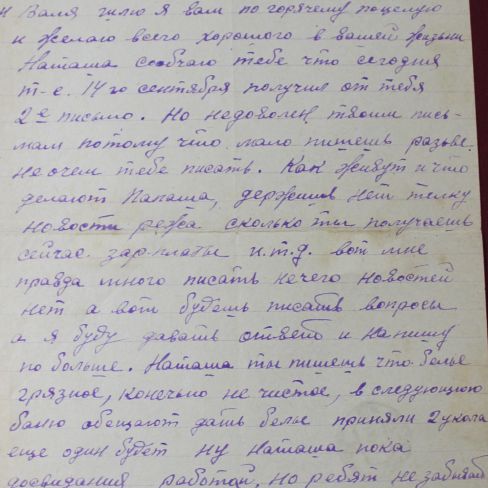 и Валя шлю я вам по горячему поцелую
и желаю всего хорошого в вашей жизни
Наташа собчаю тебе что сегодня
т-е. 14го сентября получил от тебя
2е письмо. Но недоволен твоим пись-
мам потому что мало пишешь разьве
не очем тебе писать. Как живут и что
делают Папаша, держишь нет телку
новости сколько ты получаешь
сейчас зарплаты и.т.д. вот мне
правда много писать нечего новостей
нет а вот будешь писать вопросы
а я буду давать ответ и напишу
по больше. Наташа ты пишешь что белье
грязное, конечьно не чистое, в следующюю
баню обещают дать белье приняли 2 укола
еще один будет ну Наташа пока
досвидания работой, но ребят не забывай